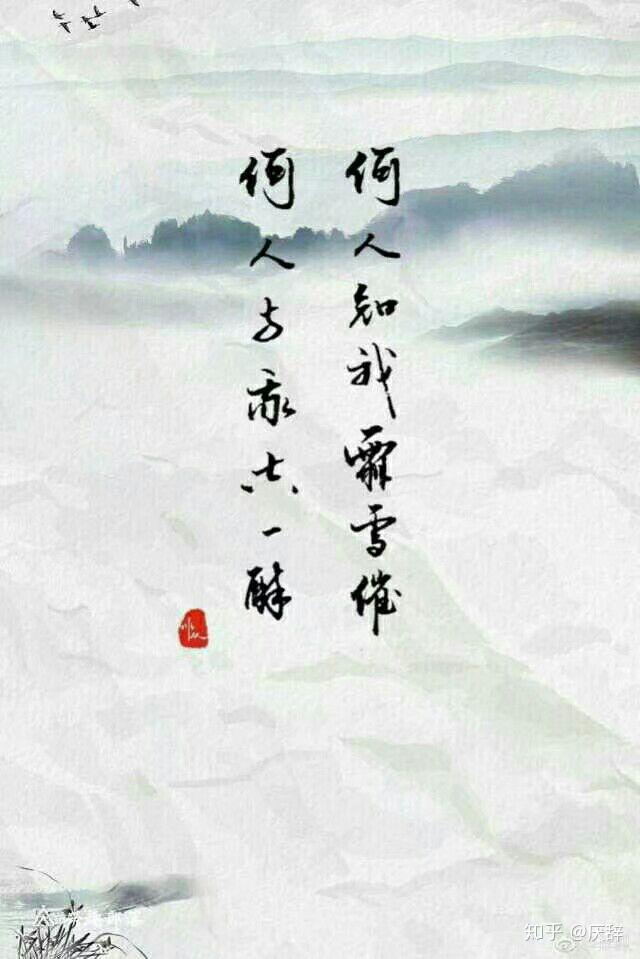 何人知我霜雪催
何人与我共一醉
知乎 @厌辞